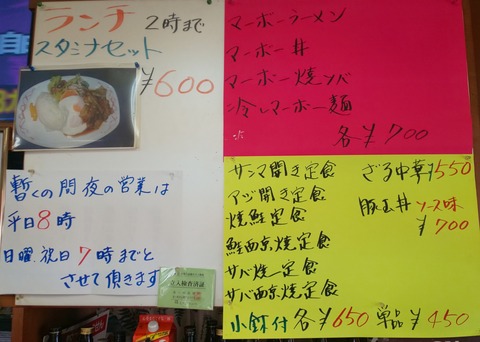 ランチ 2時まで
スタミナセット
¥600
暫くの間夜の営業は
平日8時
日曜.祝日7時までと
させて頂きます
立入検査済証
マーボーラーメン
マーボー丼
マーボー焼ソバ
冷しマーボー麺
各¥700
サンマ開き定食
アジ開き定食
焼鮭定食
鮭西京焼定食
サバ焼定食
サバ西京焼定食
小鉢付 各¥650 単品¥450
ざる中華¥550
豚玉丼 ソース味
¥700